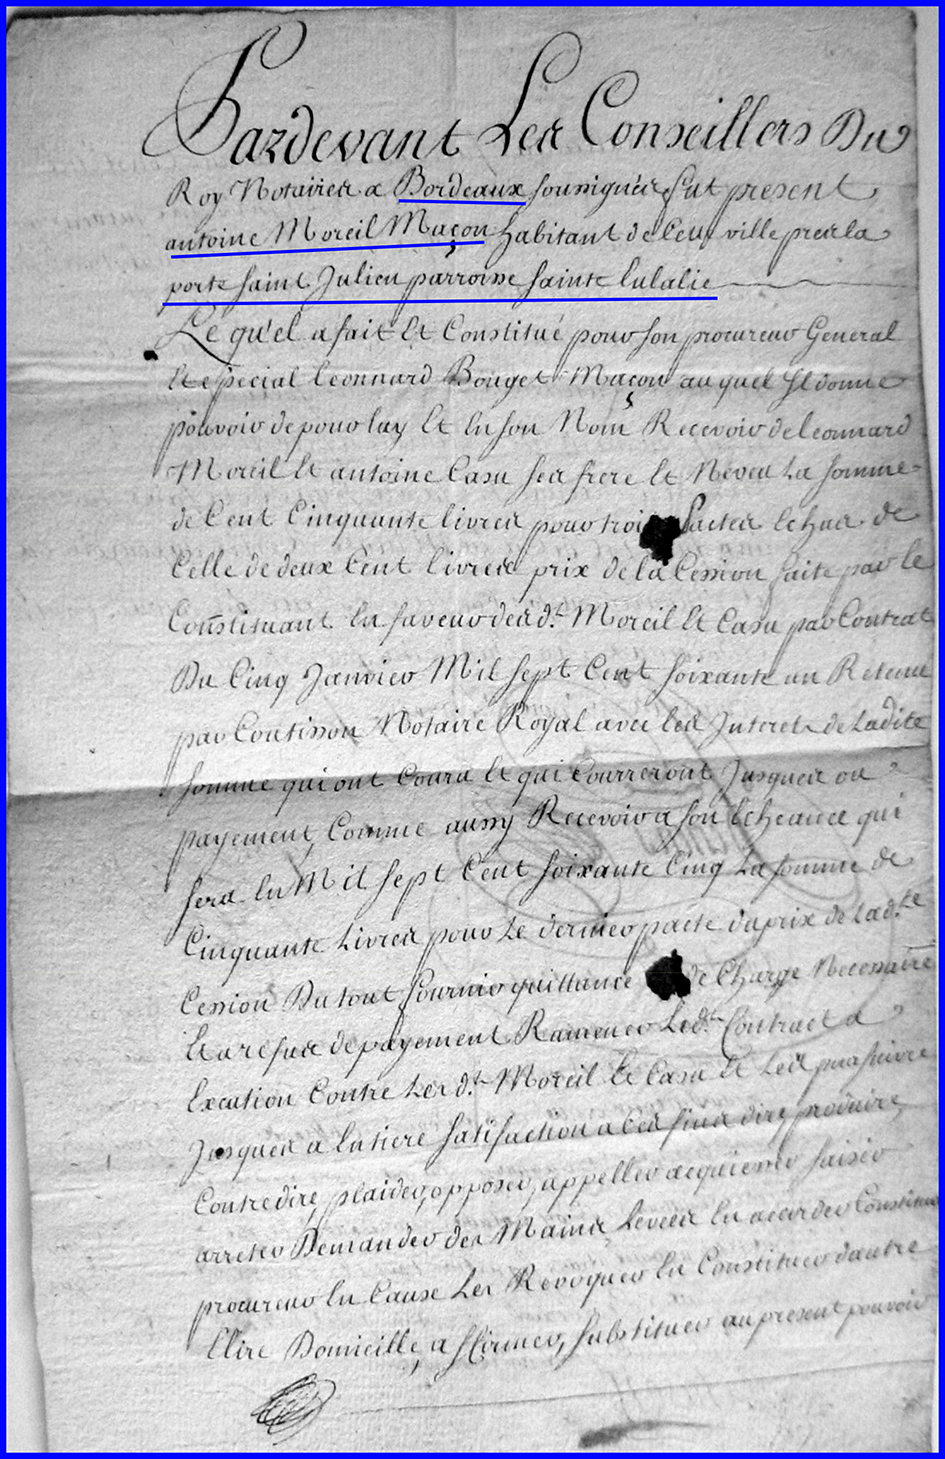 Pardevant Les Conseillers Du
Roy Notaires a Bordeaux soussignés fut present
antoine Moreil Maçon habitant de cette ville pres la
porte saint Julien parroisse sainte Eulalie
Le qu'el a fait Et Constitué pour son procureur General
Et special Leonnard Bouget Maçon au quel Il donne
pouvoir de pour luy Et En son Nom Recevoir de leonnard
Moreil Et antoine Casu ses frere Et Neveu La somme
de Cent Cinquante livres pour trois pactes Echus de
Celle de deux Cent livres prix de la Cession faite par le
Constituant En faveur desd.ts Moreil Et Casu par Contrat
Du Cinq Janvier Mil sept Cent soixante un Retenu
par Notaire Royal avec les Interets de Ladite
somme qui ont Couru Et qui Courreront Jusques au
payement, Comme aussy Recevoir a son Echeance qui
sera En Mil sept Cent soixante Cinq La somme de
Cinquante Livres pour Le dernier pacte du prix de Lad.te
Cession Du tout fournir quittance de Charge Necessaire
Et a refus de payement Ramener Led.t Contract a
Execution Contre Lesd.ts Moreil Et Casu Et Les poursuivre
Jusques a Entiere satisfaction a Ces fins dire, produire,
Contredire, plaider, opposer, appeller acquiesser saisir
arreter Demander des Mains Levées En accorder Constituer
procureur En Cause Les Revoquer En Constituer d'autre
Elire Domicille, affirmer, substituer au present pouvoir